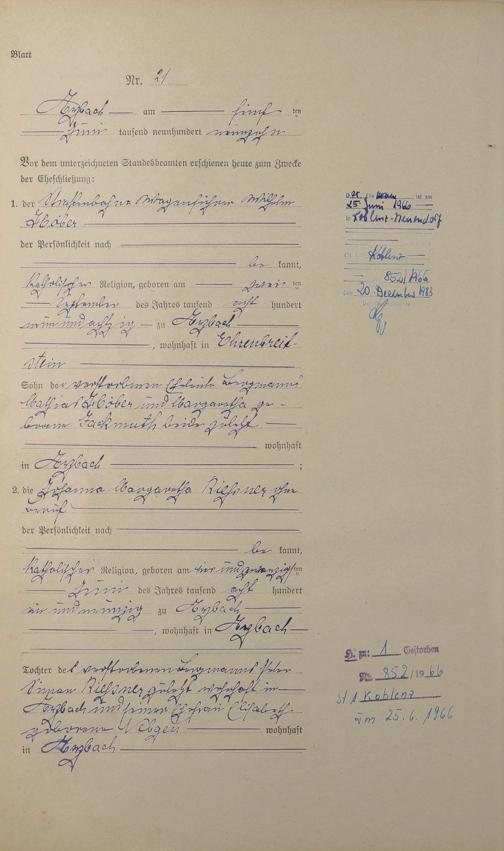 Blatt
Nr. 21
Arzbach am fünf ten
Juni tausend neunhundert neunzehn
Vor dem unterzeichneten Standesbeamten erschienen heute zum Zwecke
der Eheschließung:
1. der Straßenbahn Wagenführer Wilhelm
der Persönlichkeit nach
be kannt,
katholischer Religion, geboren am zwei ten
September des Jahres tausend acht hundert
neun und achtzig zu Arzbach
, wohnhaft in Ehrenbreit-
stein
Sohn der verstorbenen Eheleute Bergmanns
Mathias und Margaretha ge-
borene beide zuletzt
wohnhaft
in Arzbach ;
2. die Johanna Margaretha ohne
Beruf
der Persönlichkeit nach
be kannt,
katholischer Religion, geboren am vier und zwanzigsten
Juni des Jahres tausend acht hundert
und neunzig zu Arzbach
, wohnhaft in Arzbach
Tochter des verstorbenen Bergmanns Peter
Simon zuletzt wohnhaft in
Arzbach und seiner Ehefrau Elisabeth
geborene wohnhaft
in Arzbach
25 Juni 1966
Koblenz-Neuendorf
Koblenz
852/1966
20. Dezember 1983
H. zu: 1 Gestorben
Nr. 852/1966
St.A Koblenz
am 25.6.1966